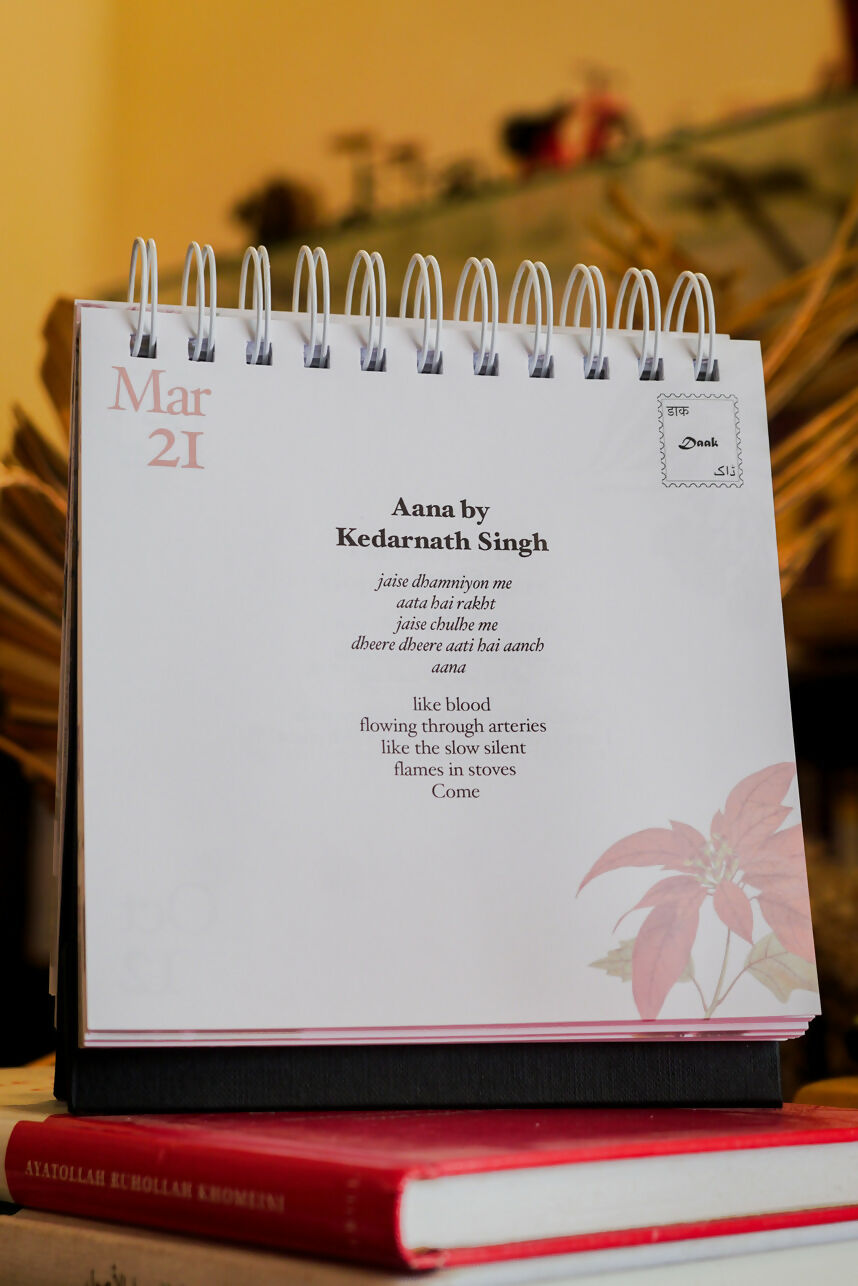 Mar
21
डाक
Daak
ڈاک
Aana by
Kedarnath Singh
jaise dhamniyon me
aata hai rakht
jaise chulhe me
dheere dheere aati hai aanch
aana
like blood
flowing through arteries
like the slow silent
flames in stoves
Come
Oct
12
AYATOLLAH RUHOLLAH KHOMEINI